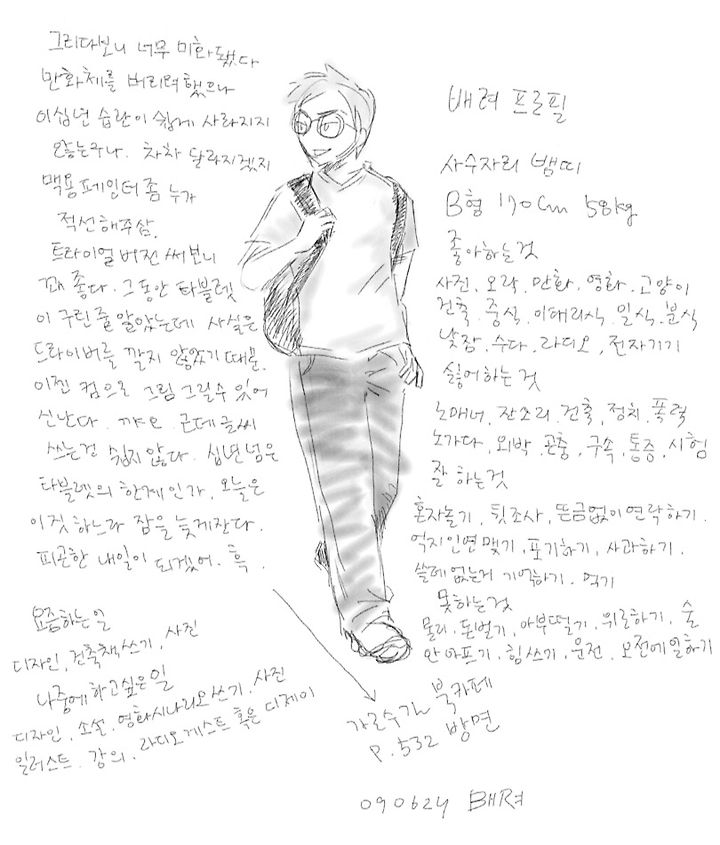 그리다보니 너무 미화됐다
만화체를 버리려했으나
이십년 습관이 쉽게 사라지지
않는구나. 차차 달라지겠지
맥용페인터좀 누가
적선해주삼.
트라이얼버전써보니
꽤 좋다. 그동안 타블렛
이 구린줄알았는데 사실은
드라이버를 깔지 않았기때문.
이젠 컴으로 그림 그릴수있어
신난다. 꺄요. 근데글씨
쓰는건 쉽지않다. 십년넘은
타블렛의 한계인가, 오늘은
이짓하느라 잠을 늦게잔다.
피곤한 내일이 되겠어. 흑.
요즘하는일
디자인, 건축책쓰기, 사진
나중에하고싶은일
디자인. 소설. 영화시나리오쓰기. 사진
일러스트. 강의. 라디오게스트 혹은 디제이
배려 프로필
사수자리 뱀띠
B형 170cm 58kg
좋아하는것
사진. 오락. 만화. 영화. 고양이
건축. 중식. 이태리식. 일식. 분식
낮잠. 수다. 라디오, 전자기기
싫어하는것
노매너, 잔소리. 건축, 정치. 폭력
노가다, 외박. 곤충, 구속, 통증, 시험
잘하는것
혼자놀기, 뒷조사, 뜬금없이연락하기.
억지인연맺기, 포기하기, 사과하기.
쓸데없는거 기억하기. 먹기
못하는것
물리. 돈벌기, 아부떨기, 위로하기, 술
안아프기, 힘쓰기, 운전. 오전에일하기
가로수길 북카페
P. 532 방면
090624 배려